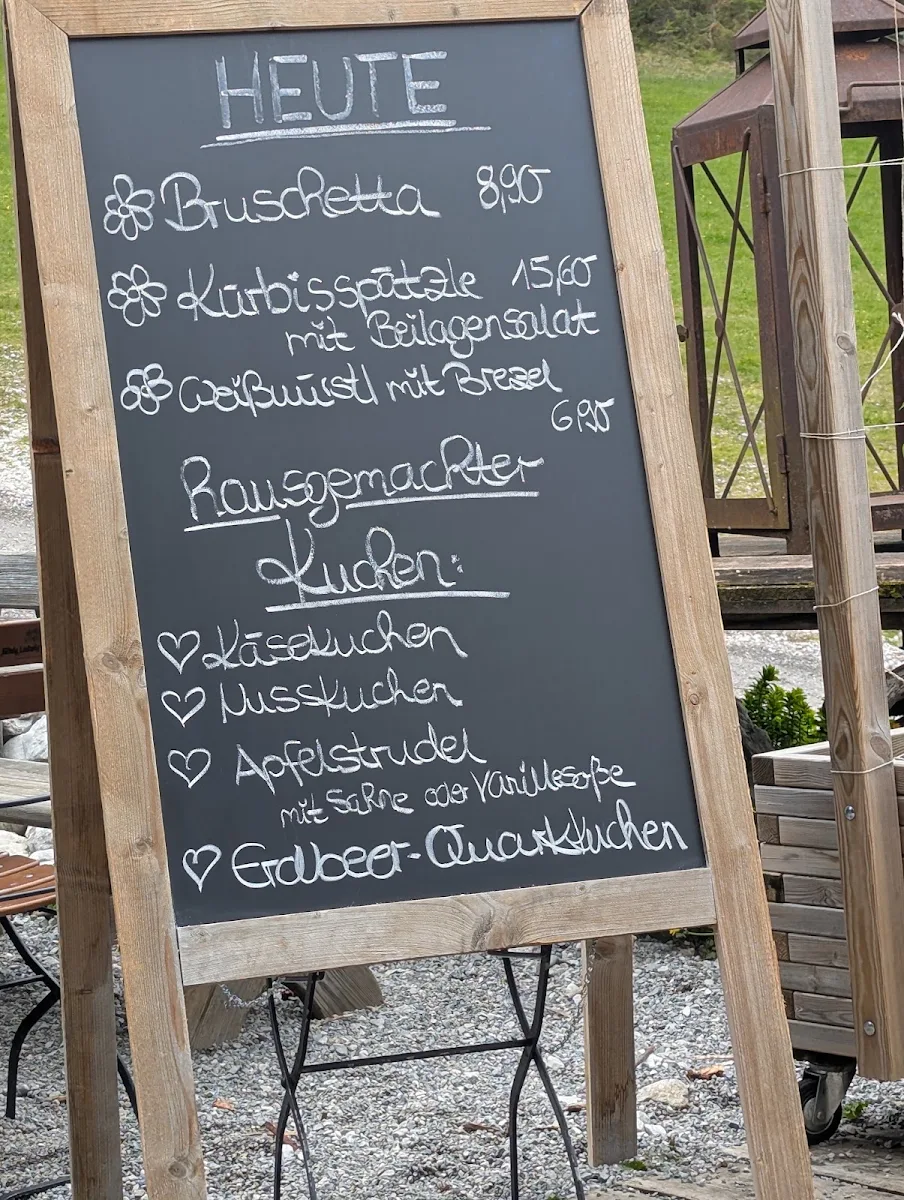 HEUTE
Bruschetta 8,90
Kürbisspätzle 15,60
mit Beilagensalat
Weißwürstl mit Brezel
6,90
Hausgemachter
Kuchen:
Käsekuchen
Nusskuchen
Apfelstrudel
mit Sahne oder Vanillesoße
Erdbeer-Quarkkuchen